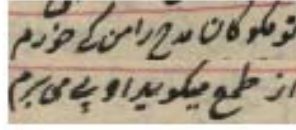 تو مگو کان مدح را من کی خورم
از طمع میگوید او پی می برم